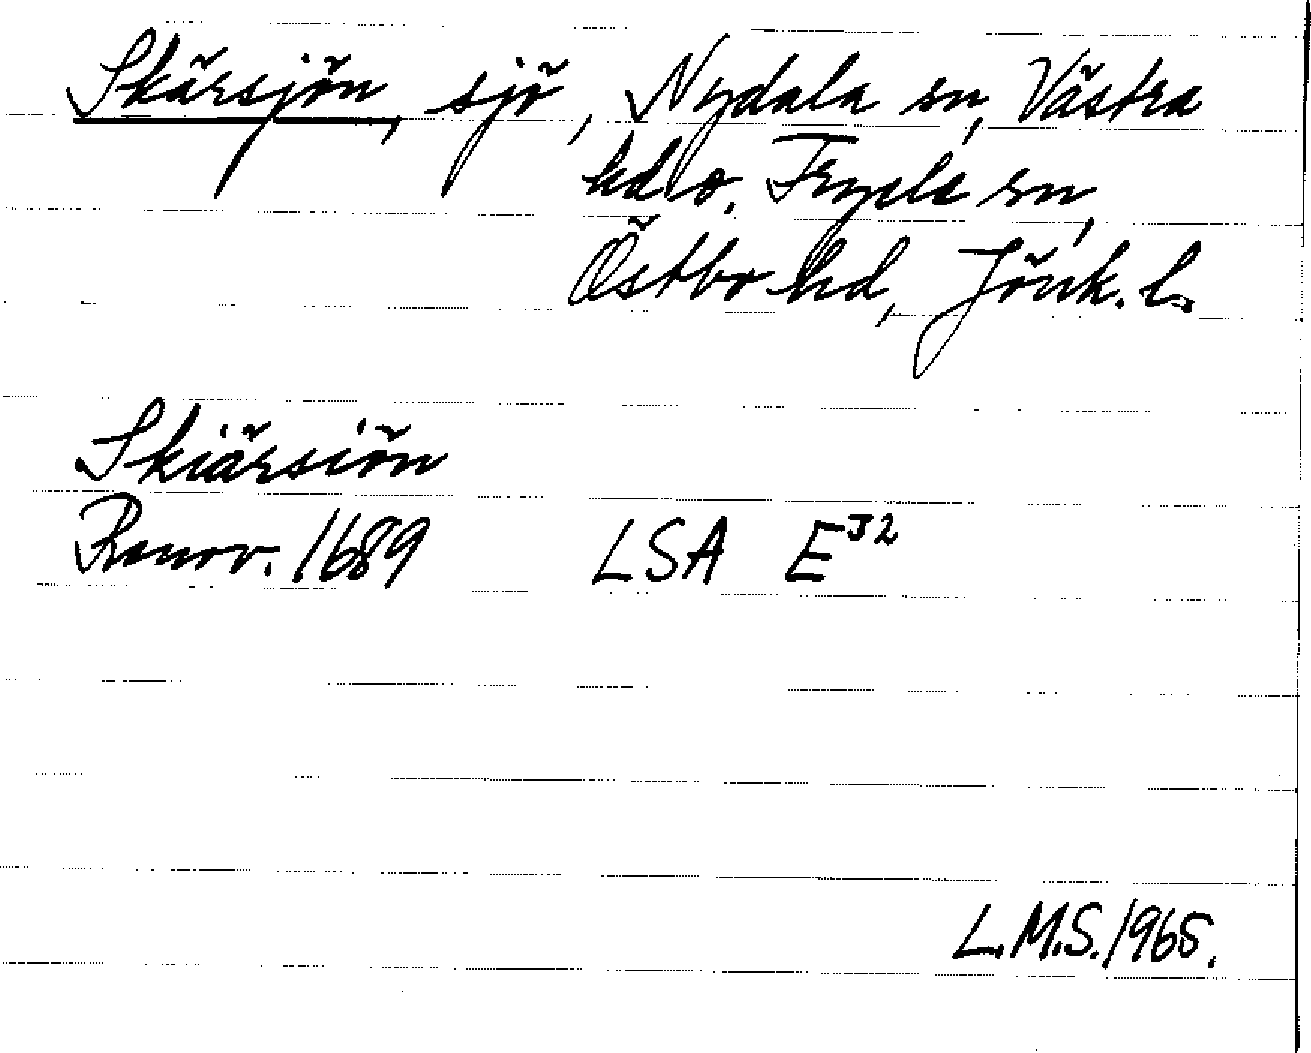 Skärsjön, sjö, Nydala sn, Västra
hd o. Fryele sn,
Östbo hd, Jönk. l.
Skiärsiön
Renov. 1689 LSA E³²
L.M.S. 1965.